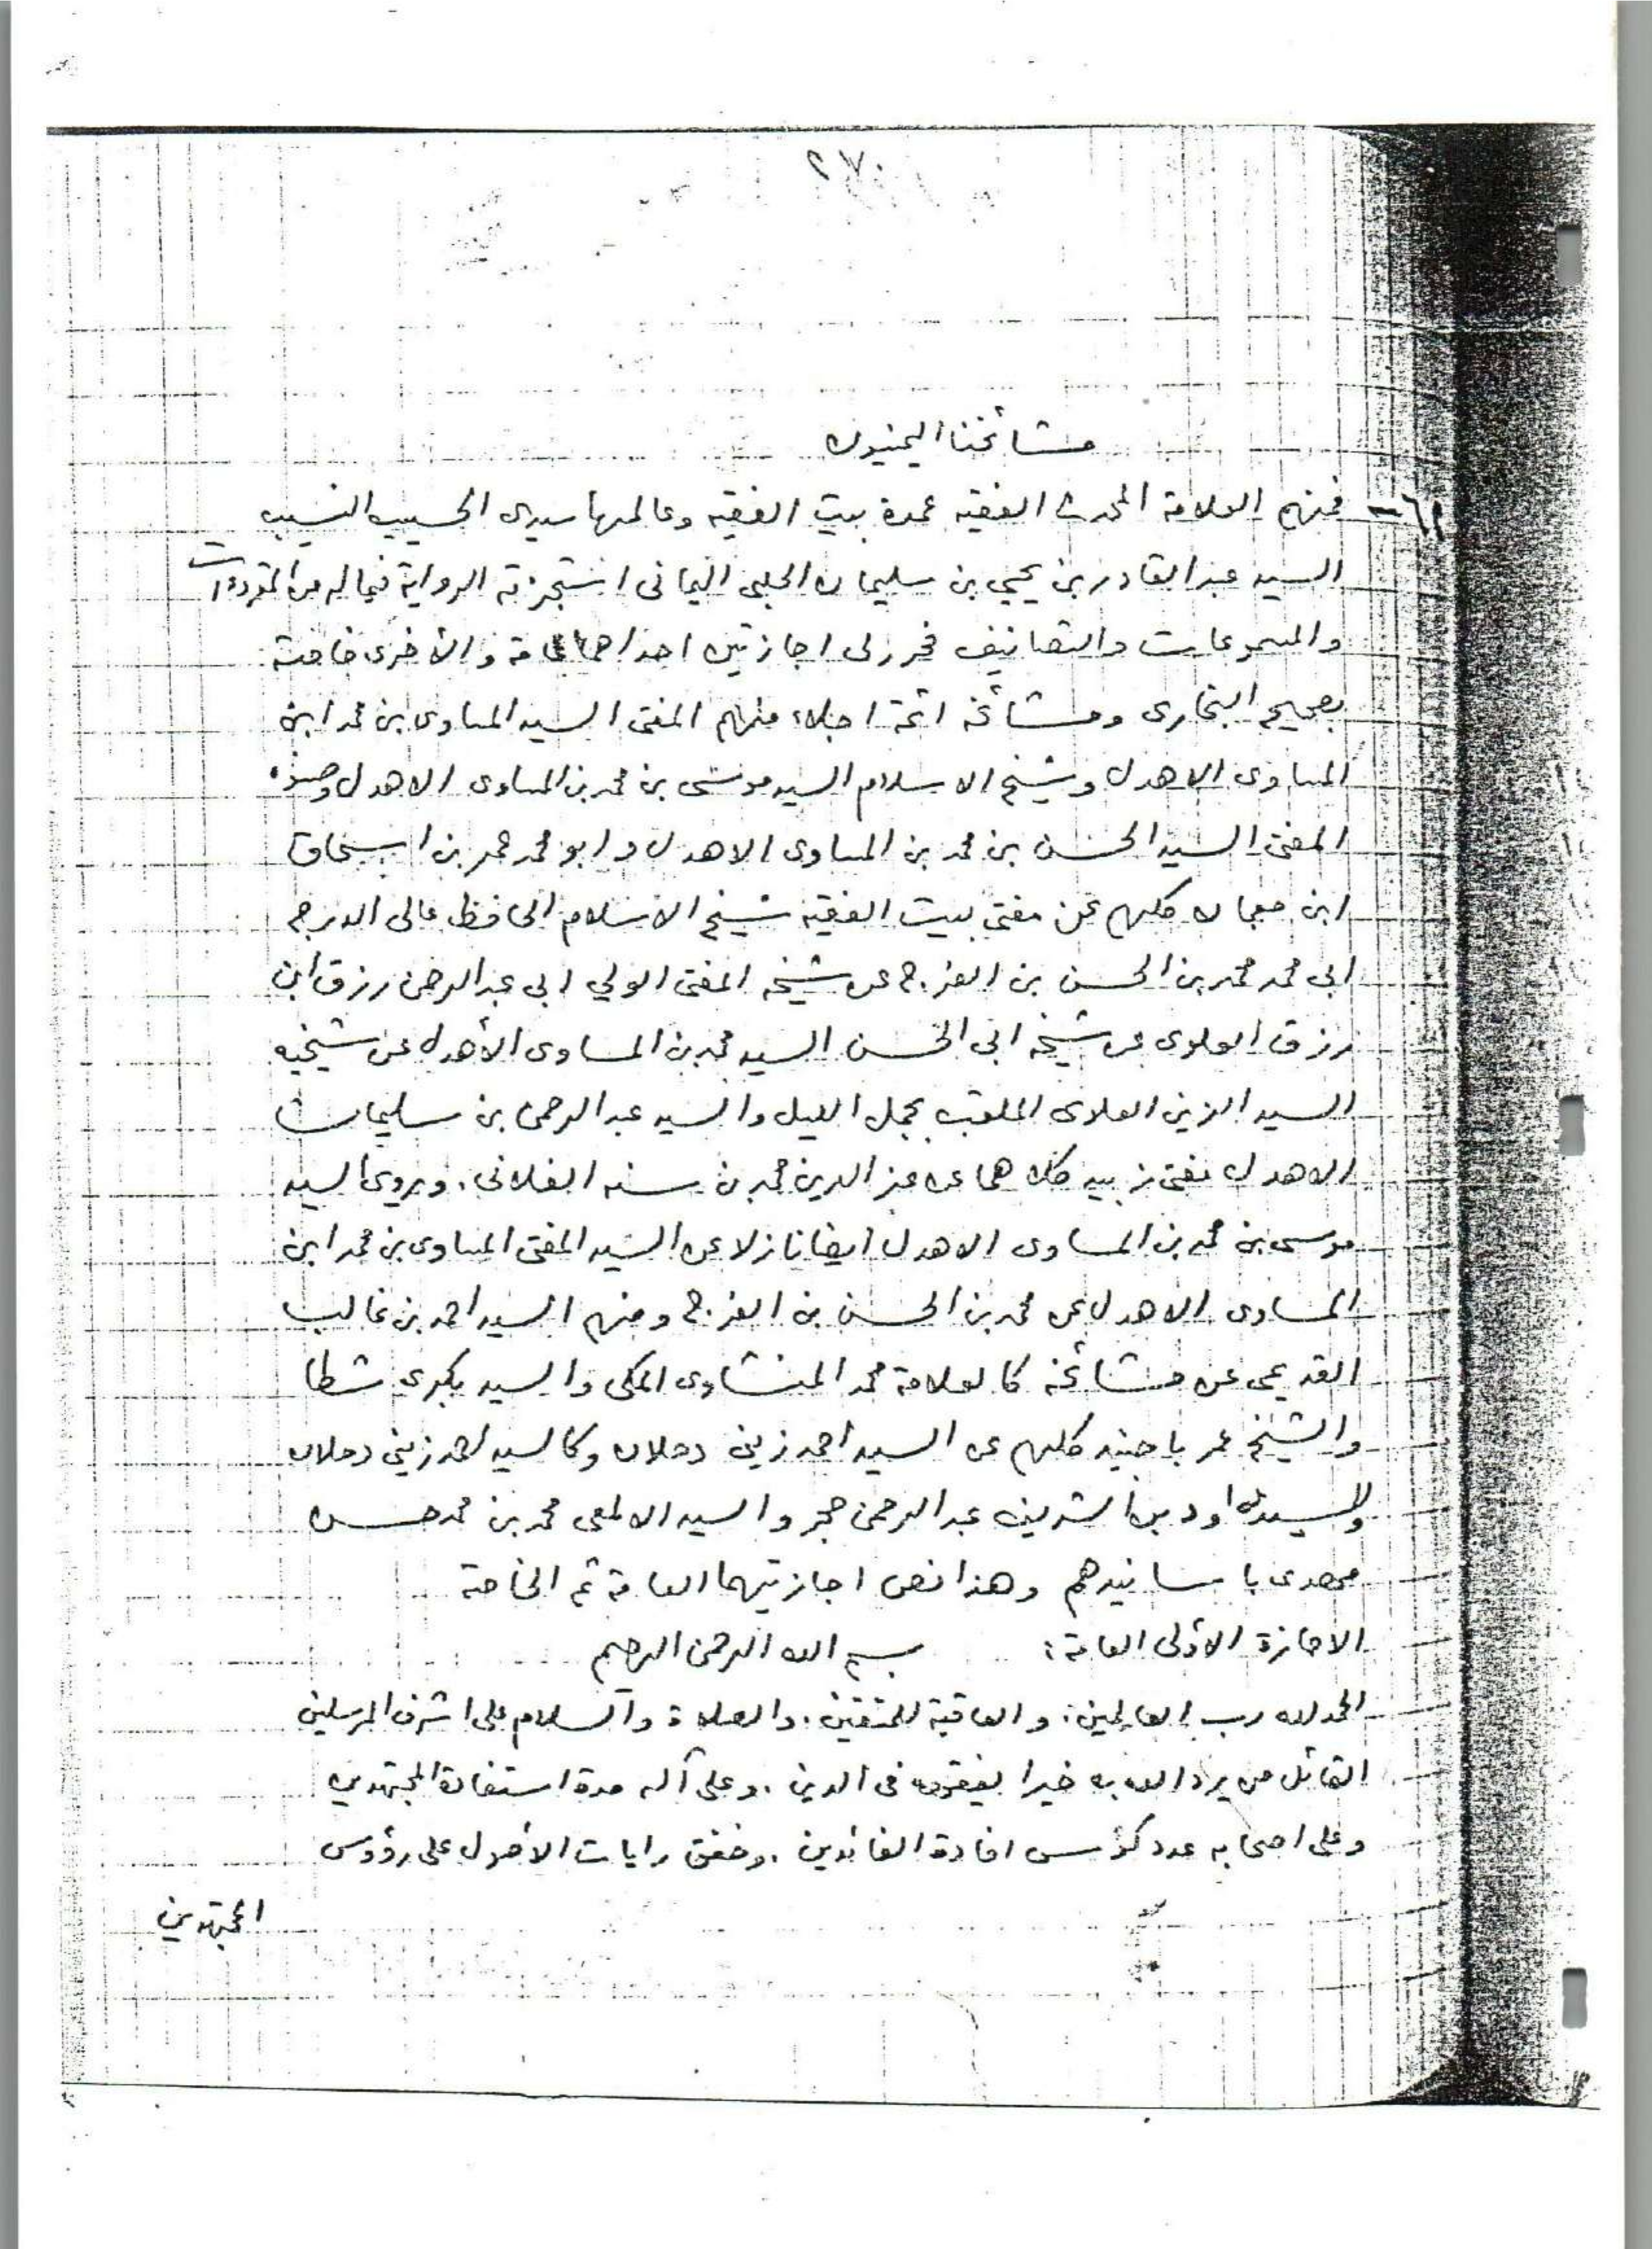 ٢٧٠
مشائخنا اليمنيون
٦١- فمنهم العلامة المحدث الفقيه عمدة بيت الفقيه وعالمها سيدى الحسيب النسيب
السيد عبد القادر بن يحيى بن سليمان الحلبى اليمانى استجزته الرواية فيما له من المقروءات
والمسموعات والتصانيف فحرر لى اجازتين احداهما عامة والأخرى خاصة
بصحيح البخارى ومشائخه ائمة اجلاء منهم المفتى السيد المساوى بن محمد ابن
المساوى الاهدل وشيخ الاسلام السيد موسى بن محمد بن المساوى الاهدل وصنوه
المفتى السيد الحسن بن محمد بن المساوى الاهدل وابو محمد عمر بن اسحاق
ابن جعمان كلهم عن مفتى بيت الفقيه شيخ الاسلام الحافظ عالى الدرجه
ابى محمد محمد بن الحسن بن الفرج عن شيخه المفتى الولي ابى عبد الرحمن رزق ابن
رزق العلوى عن شيخه ابى الحسن السيد محمد بن المساوى الأهدل عن شيخيه
السيد الزين العلوى الملقب بجمل الليل والسيد عبد الرحمن بن سليمان
الاهدل مفتى زبيد كلاهما عن عز الدين محمد بن سنه الفلانى. ويروى السيد
موسى بن محمد بن المساوى الاهدل ايضا نازلا عن السيد المفتى المساوى بن محمد ابن
المساوى الاهدل عن محمد بن الحسن بن الفرج ومنهم السيد احمد بن غالب
القديمى عن مشائخه كالعلامة محمد المنشاوى المكى والسيد بكرى شطا
والشيخ عمر باجنيد كلهم عن السيد احمد زينى دحلان وكالسيد احمد زينى دحلان
والسيد داود بن الشريف عبد الرحمن حجر والسيد الالمعى محمد بن محمد حسن
باسانيدهم وهذا نص اجازتيهما العامة ثم الخاصة
الاجازة الأولى العامة: بسم الله الرحمن الرحيم
الحمد لله رب العالمين. والعاقبة للمتقين. والصلاة والسلام على اشرف المرسلين
القائل من يرد الله به خيرا يفقهه فى الدين. وعلى آله مدة استفادة المجتهدين
وعلى اصحابه عدد كؤس افادة الفائدين. وخفق رايات الأصول على رؤوس
المجتهدين